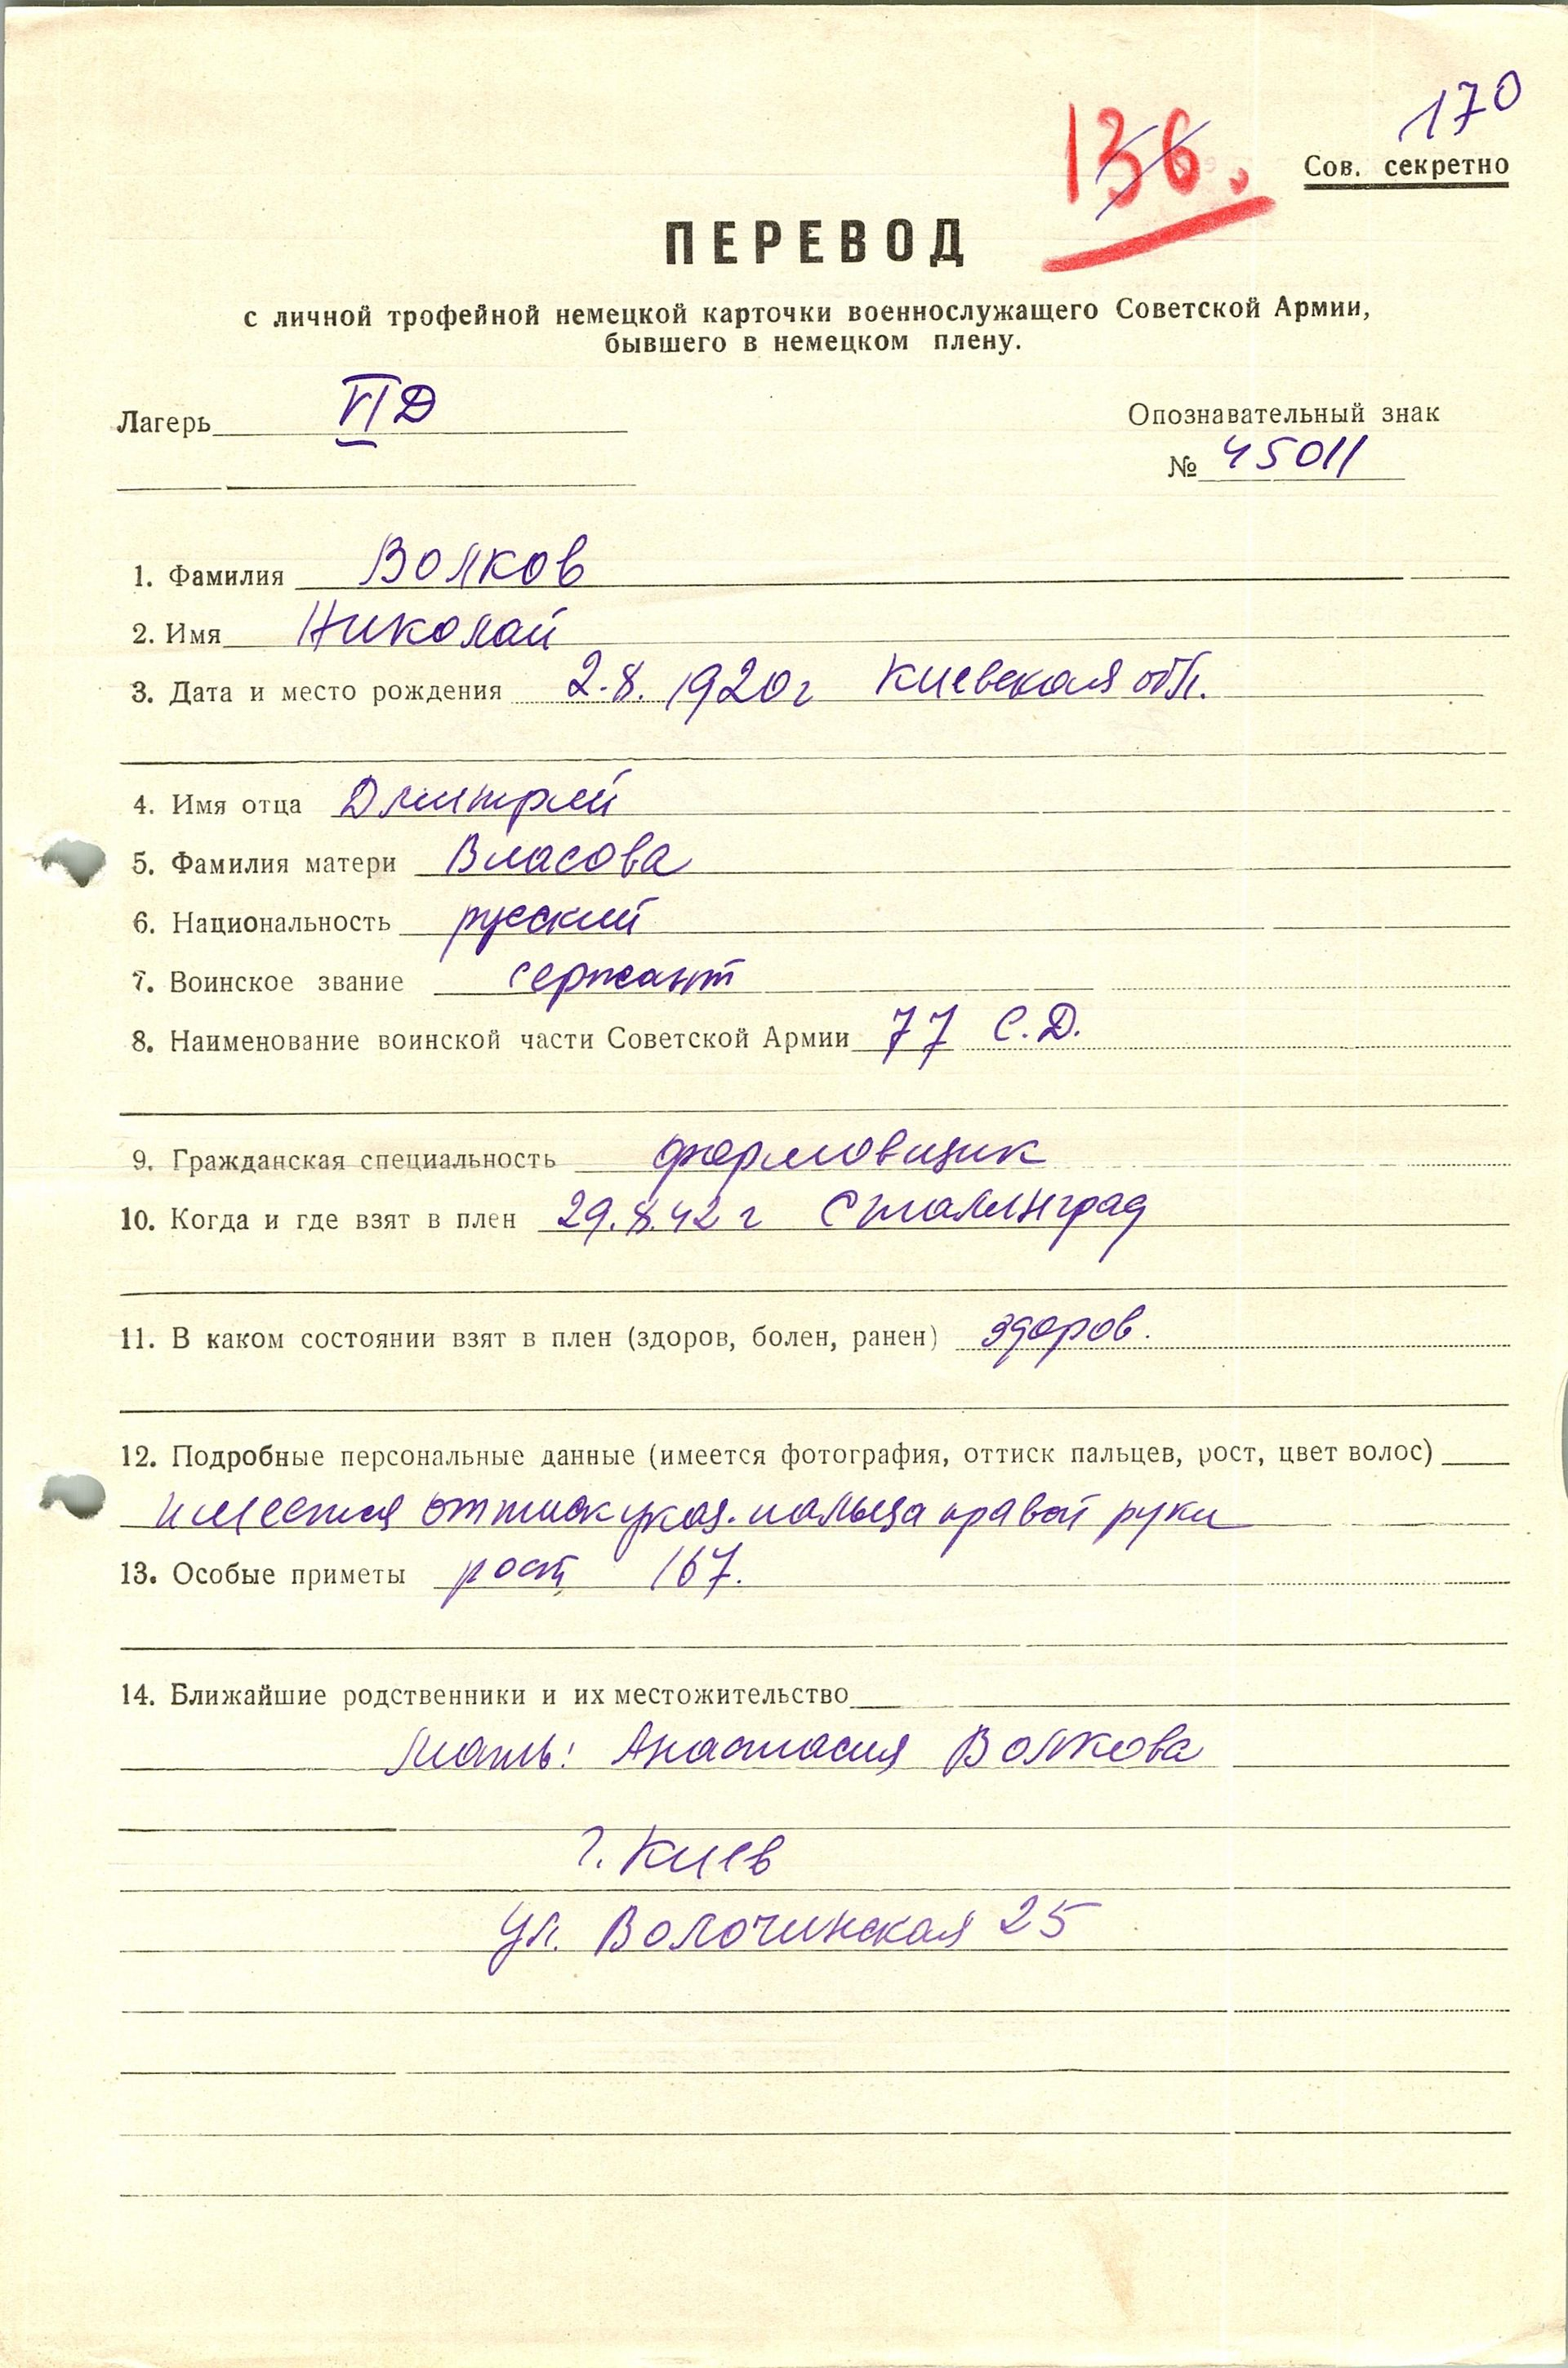 170
136.
Сов. секретно
ПЕРЕВОД
с личной трофейной немецкой карточки военнослужащего Советской Армии,
бывшего в немецком плену.
Лагерь VI Д
Опознавательный знак
№ 45011
1. Фамилия Волков
2. Имя Николай
3. Дата и место рождения 2.8. 1920г Киевская обл.
4. Имя отца Дмитрий
5. Фамилия матери Власова
6. Национальность русский
7. Воинское звание сержант
8. Наименование воинской части Советской Армии 77 С.Д.
9. Гражданская специальность формовщик
10. Когда и где взят в плен 29.8.42 г Сталинград
11. В каком состоянии взят в плен (здоров, болен, ранен) здоров.
12. Подробные персональные данные (имеется фотография, оттиск пальцев, рост, цвет волос)
имеется оттиск указ. пальца правой руки
13. Особые приметы рост 167.
14. Ближайшие родственники и их местожительство
Мать: Анастасия Волкова
г. Киев
ул. Волочинская 25